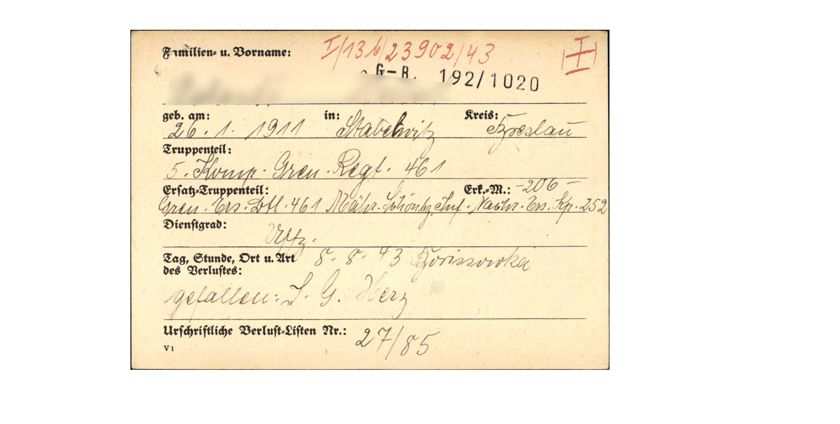 Familien- u. Vorname: I/13b/23902/43 I
G-R. 192/1020
geb. am: in: Kreis:
26. 1. 1911 Stabelwitz Breslau
Truppenteil:
5. Komp. Gren. Regt. 461
Ersatz-Truppenteil: Erk.-M.: -206-
Gren. Ers. Btl. 461 Mähr. Schönbg. Inf. Nachr. Ers. Kp. 252
Dienstgrad:
Uffz.
Tag, Stunde, Ort u. Art 8. 8. 43 Borissowka
des Verlustes:
gefallen: I. G. Herz
Urschriftliche Verlust-Listen Nr.: 27/85
V1